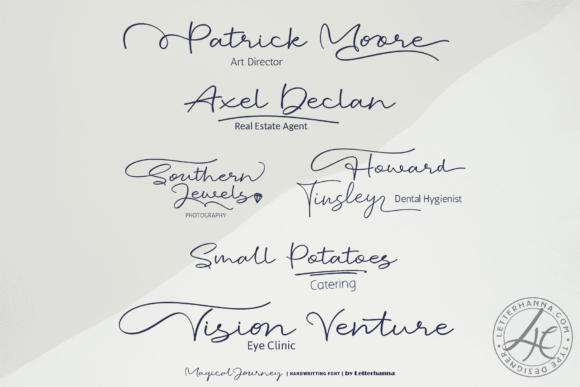 Patrick Moore
Art Director
Axel Declan
Real Estate Agent
Southern
Jewels
PHOTOGRAPHY
Howard
Tinsley Dental Hygienist
Small Potatoes
Catering
Vision Venture
Eye Clinic
Magical Journey | HANDWRITTING FONT | by Letterhanna
LETTERHANNA.COM
TYPE DESIGNER
LH